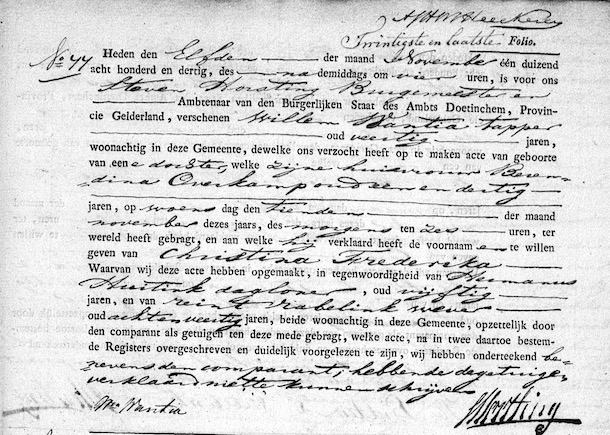 Twintigste en laatste Folio.
No 44 Heden den Elfden der maand November één duizend
acht honderd en dertig, des na demiddags om vier uren, is voor ons
Steven Horsting Burgemeester en
Ambtenaar van den Burgerlijken Staat des Ambts Doetinchem, Provin-
cie Gelderland, verschenen Willem Vantia tapper
oud veertig jaren,
woonachtig in deze Gemeente, dewelke ons verzocht heeft op te maken acte van geboorte
van een e dochter, welke zijne huisvrouw Beren-
dina Overkamp oud een en dertig
jaren, op woens dag den tienden der maand
november dezes jaars, des morgens ten zes uren, ter
wereld heeft gebragt, en aan welke hij verklaard heeft de voornam en te willen
geven van Christina Frederika
Waarvan wij deze acte hebben opgemaakt, in tegenwoordigheid van Hermanus
Huitink dagloner, oud vijftig
jaren, en van reint Vrabelink wever
oud acht en veertig jaren, beide woonachtig in deze Gemeente, opzettelijk door
den comparant als getuigen ten deze mede gebragt, welke acte, na in twee daartoe bestem-
de Registers overgeschreven en duidelijk voorgelezen te zijn, wij hebben onderteekend be-
nevens den comparant, hebbende de getuige-
verklaard niet te kunnen schrijven
Wm Vantia SHorsting